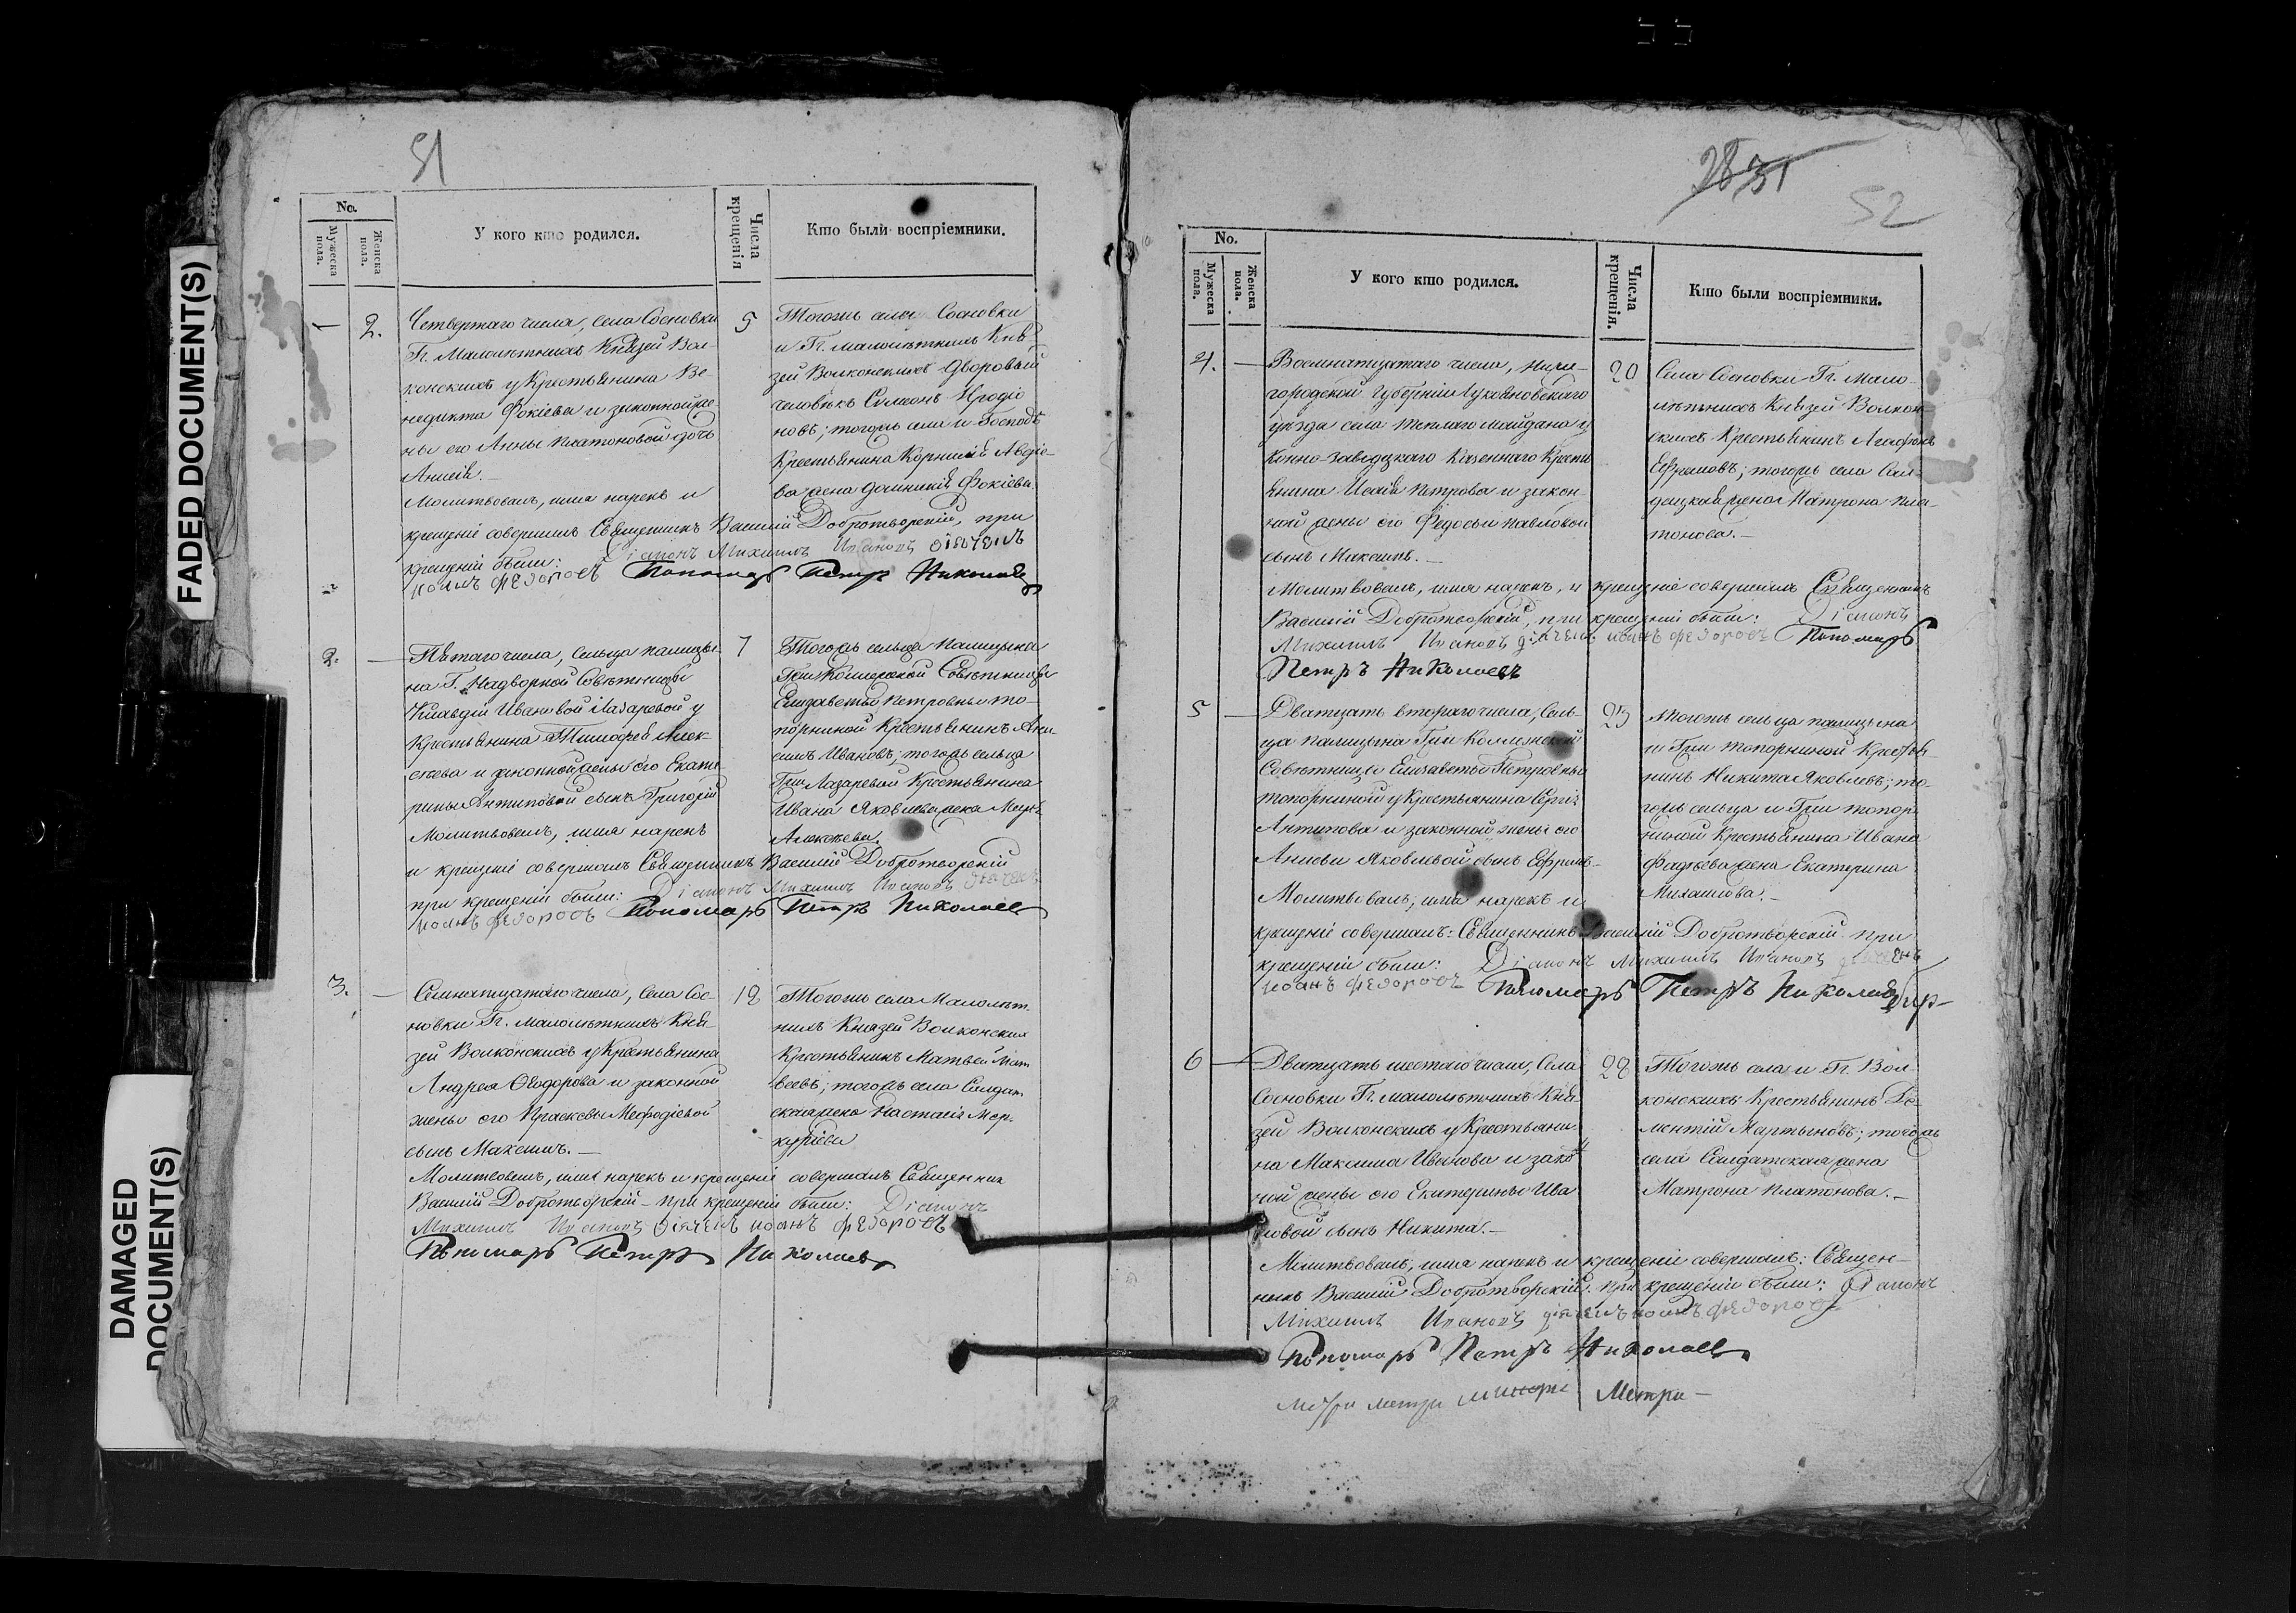 FADED DOCUMENT(S)
DAMAGED
DOCUMENT(S)
51
No.
Мужеска пола.
Женска пола.
У кого кто родился.
Числа крещенія
Кто были воспріемники.
2.
Четвертаго числа, села Сосновки
Гг. Малолѣтныхъ Князей Вол-
конскихъ у Крестьянина Ве-
недикта Фокіева и законной же-
ны его Анны Платоновой дочь
Анисія.
Молитвовалъ, имя нарекъ и
крещеніе совершилъ Священникъ Василій Добротворскій, при
крещеніи были: Діаконъ Михаилъ Ивановъ дьячекъ
иоанъ Федоровъ Пономарь Петръ Николаевъ
5
Тогожъ села Сосновки
и Гг. малолѣтныхъ Кня-
зей Волконскихъ дворовый
человѣкъ Симеонъ Иродіо
новъ; тогожъ села и Господъ
Крестьянина Корнилія Авдіе-
ва жена Домникія Фокіева.
2.
Пятаго числа, сельца Палицы-
на Г. Надворной Совѣтницы
Клавдіи Ивановой Лазаревой у
Крестьянина Тимофея Алек-
сѣева и законной жены его Екате-
рины Антиповой сынъ Григорій
Молитвовалъ, имя нарекъ
и крещеніе совершилъ Священникъ Василій Добротворскій
при крещеніи были: Діаконъ Михаилъ Ивановъ дьячекъ
иоанъ Федоровъ Пономарь Петръ Николаевъ
7
Тогожъ сельца Палицына
Гжи Коллежской Совѣтницы
Елизаветы Петровны То-
порниной Крестьянинъ Ани-
симъ Ивановъ; тогожъ сельца
Гжи Лазаревой Крестьянина
Ивана Яковлева жена
Алексѣева.
3.
Семнатцатаго числа, Села Сос-
новки Гг. малолѣтныхъ Кня-
зей Волконскихъ у Крестьянина
Андрея Ѳеодорова и законной
жены его Праскевы Меѳодіевой
сынъ Максимъ.
Молитвовалъ, имя нарекъ и крещеніе совершилъ Священникъ
Василій Добротворскій - при крещеніи были: Діаконъ
Михаилъ Ивановъ дьячекъ иоанъ Федоровъ
Пономарь Петръ Николаевъ
Тогожъ села Малолѣт-
ныхъ Князей Волконскихъ
Крестьянинъ Матвей Мат
веевъ; тогожъ села Салдат
ская жена Настасія Мер-
куріева
28 31
52
No.
Мужеска пола.
Женска пола.
У кого кто родился.
Числа крещенія.
Кто были воспріемники.
4.
Восемнатцатаго числа, Ниже-
городской Губерніи Лукояновскаго
уѣзда села Теплого Майдана у
Конно-Заводцкаго Казеннаго Кресть
янина Исаія Петрова и закон-
ной жены его Федосьи Павловой
сынъ Максимъ.
Молитвовалъ, имя нарекъ, и крещеніе совершилъ Священникъ
Василій Добротворскій, при крещеніи были: Діаконъ
Михаилъ Ивановъ дьячекъ иоанъ Федоровъ Пономарь
Петръ Николаевъ
20
Села Сосновки Гг. Мало-
лѣтныхъ Князей Волкон
скихъ Крестьянинъ Агафонъ
Ефремовъ; тогожъ села Сал-
дацкая жена Матрона Пла-
тонова.
5
Дватцать втораго числа, Сель-
ца Палицына Гжи Коллежской
Совѣтницы Елизаветы Петровны
Топорниной у Крестьянина Сергія
Антипова и законной жены его
Анисьи Яковлевой сынъ Ефремъ
Молитвовалъ; имя нарекъ и
крещеніе совершилъ: Священникъ Василій Добротворскій при
крещеніи были: Діаконъ Михаилъ Ивановъ дьячекъ
иоанъ Федоровъ Пономарь Петръ Николаевъ
Тогожъ сельца Палицына
и Гжи Топорниной Кресть-
нинъ Никита Яковлевъ; то-
гожъ сельца и Гжи Топор-
ниной Крестьянина Ивана
Фадѣева жена Екатерина
Михайлова.
6
Дватцать шестаго числа, Села
Сосновки Гг. малолѣтныхъ Кня
зей Волконскихъ у Крестьяни
на Максима Иванова и закон
ной жены его Екатерины Ива
новой сынъ Никита.
Молитвовалъ, имя нарекъ и крещеніе совершилъ: Священ-
никъ Василій Добротворскій. при крещеніи были: Діаконъ
Михаилъ Ивановъ дьячекъ иоанъ Федоровъ
Пономарь Петръ Николаевъ
Тогожъ села и Гг. Вол-
конскихъ Крестьянинъ Де-
ментій Мартыновъ; тогожъ
села Салдатская жена
Матрона Платонова.
Метри метри Метри